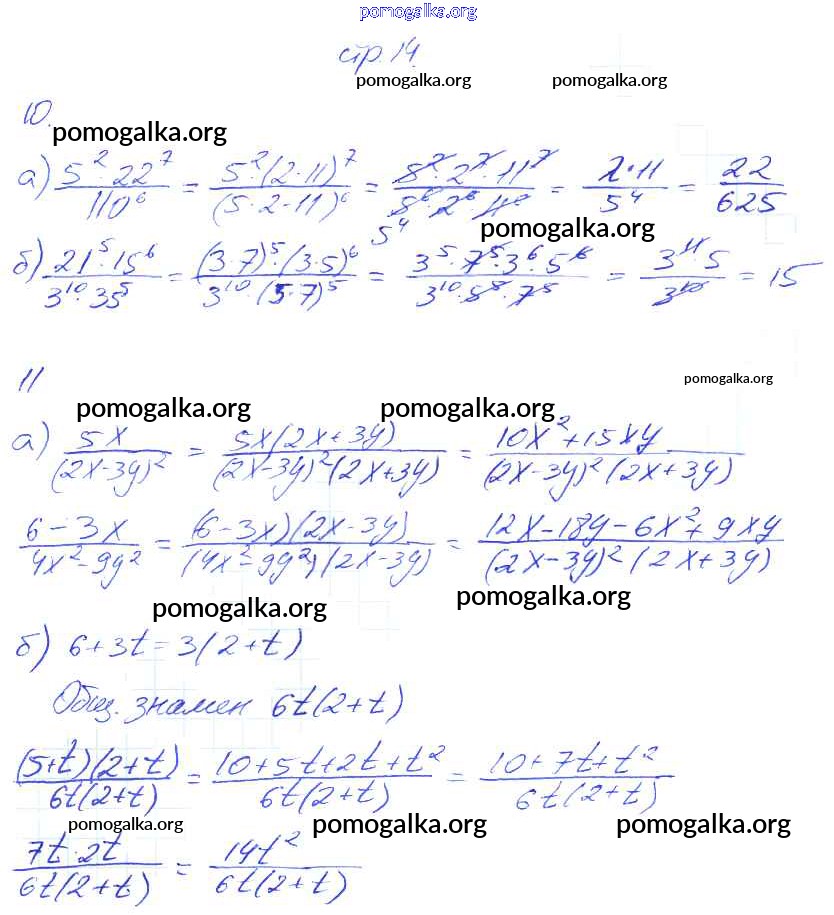 pomogalka.org
стр. 14.
pomogalka.org pomogalka.org
10.
pomogalka.org
а) 5²·22⁷/110⁶ = 5²(2·11)⁷/(5·2·11)⁶ = 5²·2⁷·11⁷/5⁶·2⁶·11⁶ = 2·11/5⁴ = 22/625
5⁴
pomogalka.org
б) 21⁵·15⁶/3¹⁰·35⁵ = (3·7)⁵·(3·5)⁶/3¹⁰·(5·7)⁵ = 3⁵·7⁵·3⁶·5⁶/3¹⁰·5⁵·7⁵ = 3¹¹·5/3¹⁰ = 15
11
pomogalka.org
pomogalka.org pomogalka.org
а) 5x/(2x-3y)² = 5x(2x+3y)/(2x-3y)²(2x+3y) = 10x²+15xy/(2x-3y)²(2x+3y)
6-3x/4x²-9y² = (6-3x)(2x-3y)/(4x²-9y²)(2x-3y) = 12x-18y-6x²+9xy/(2x-3y)²(2x+3y)
pomogalka.org pomogalka.org
б) 6+3t=3(2+t)
Общ. знамен 6t(2+t)
(5+t)(2+t)/6t(2+t) = 10+5t+2t+t²/6t(2+t) = 10+7t+t²/6t(2+t)
pomogalka.org pomogalka.org pomogalka.org
7t·2t/6t(2+t) = 14t²/6t(2+t)